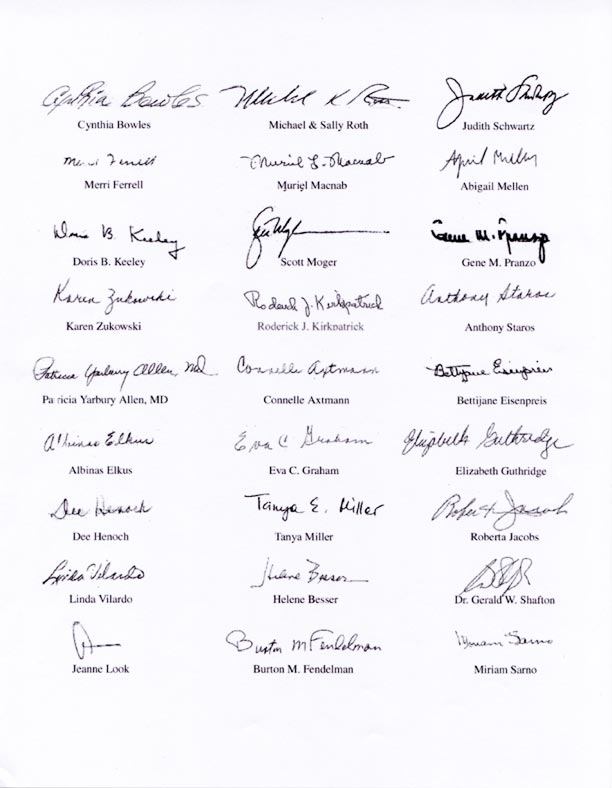 Cynthia Bowles Michael K Roth Judith Schwartz
Cynthia Bowles Michael & Sally Roth Judith Schwartz
Merri Ferrell Muriel L. Macnab April Mellen
Merri Ferrell Muriel Macnab Abigail Mellen
Doris B. Keeley Gene M. Pranzo
Doris B. Keeley Scott Moger Gene M. Pranzo
Karen Zukowski Roderick J. Kirkpatrick Anthony Staros
Karen Zukowski Roderick J. Kirkpatrick Anthony Staros
Patricia Yarbury Allen, MD Connelle Axtmann Bettijane Eisenpreis
Patricia Yarbury Allen, MD Connelle Axtmann Bettijane Eisenpreis
Albinas Elkus Eva C Graham Elizabeth Guthridge
Albinas Elkus Eva C. Graham Elizabeth Guthridge
Dee Henoch Tanya E. Miller Roberta Jacobs
Dee Henoch Tanya Miller Roberta Jacobs
Linda Vilardo Helene Besser
Linda Vilardo Helene Besser Dr. Gerald W. Shafton
Burton M Fendelman Miriam Sarno
Jeanne Look Burton M. Fendelman Miriam Sarno